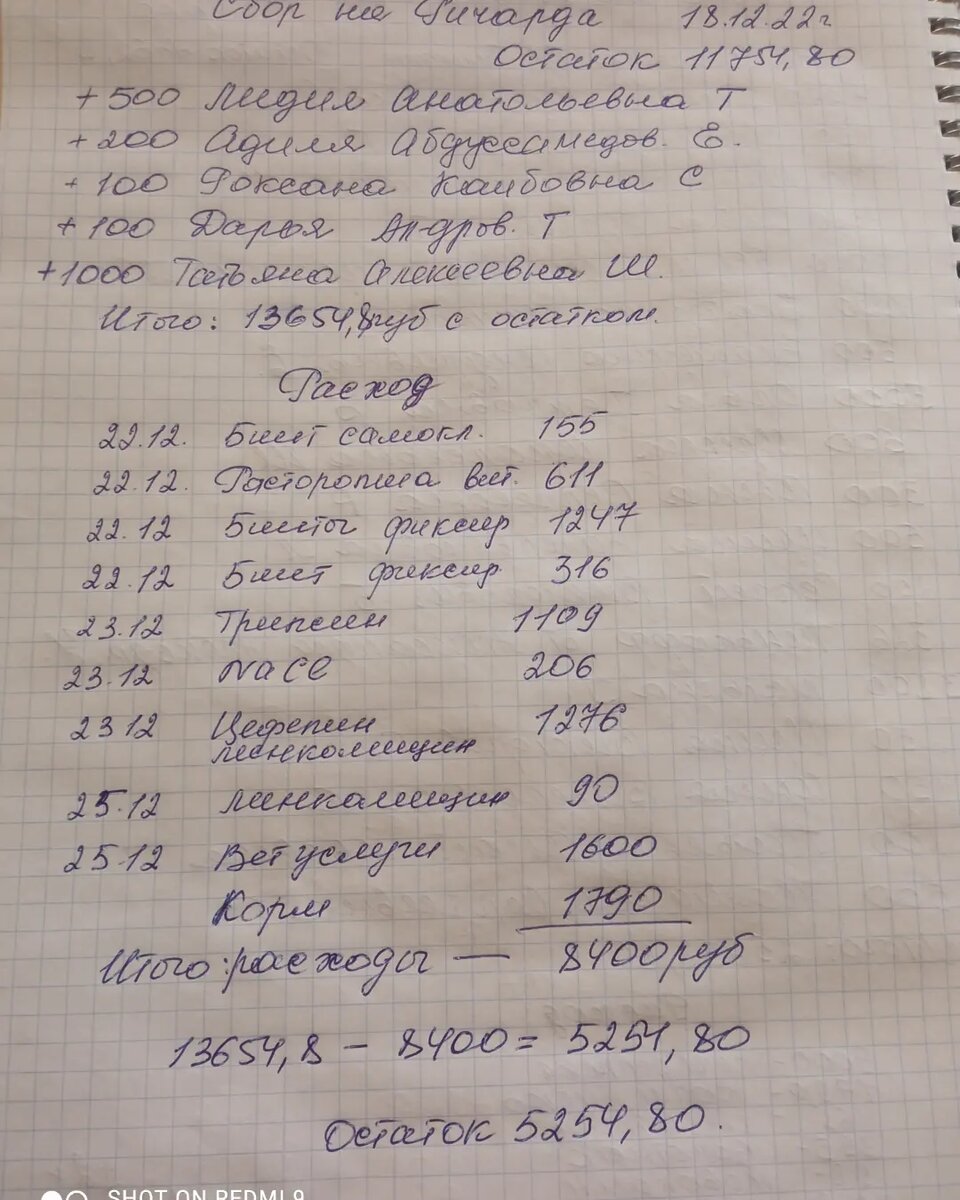 Сбор на Ричарда 18.12.22г
Остаток 11754,80
+500 Лидия Анатольевна Т
+200 Адиля Абдуссамедов. Е.
+100 Роксана Каибовна С
+100 Дарья Т
+1000 Татьяна Алексеевна Ш.
Итого: 13654,8руб с остатком.
Расход
22.12. Бинт самокл. 155
22.12. Расторопша вит. 611
22.12 Бинты фиксир 1247
22.12 Бинт фиксир 316
23.12 Трипсин 1109
23.12 NaCl 206
23 12 Цефепин 1276
линкомицин
25.12 линкомицин 90
25.12 Вет услуги 1600
Корм 1790
Итого: расходы — 8400руб
13654,8 – 8400 = 5254,80
Остаток 5254,80.
SHOT ON REDMI 9